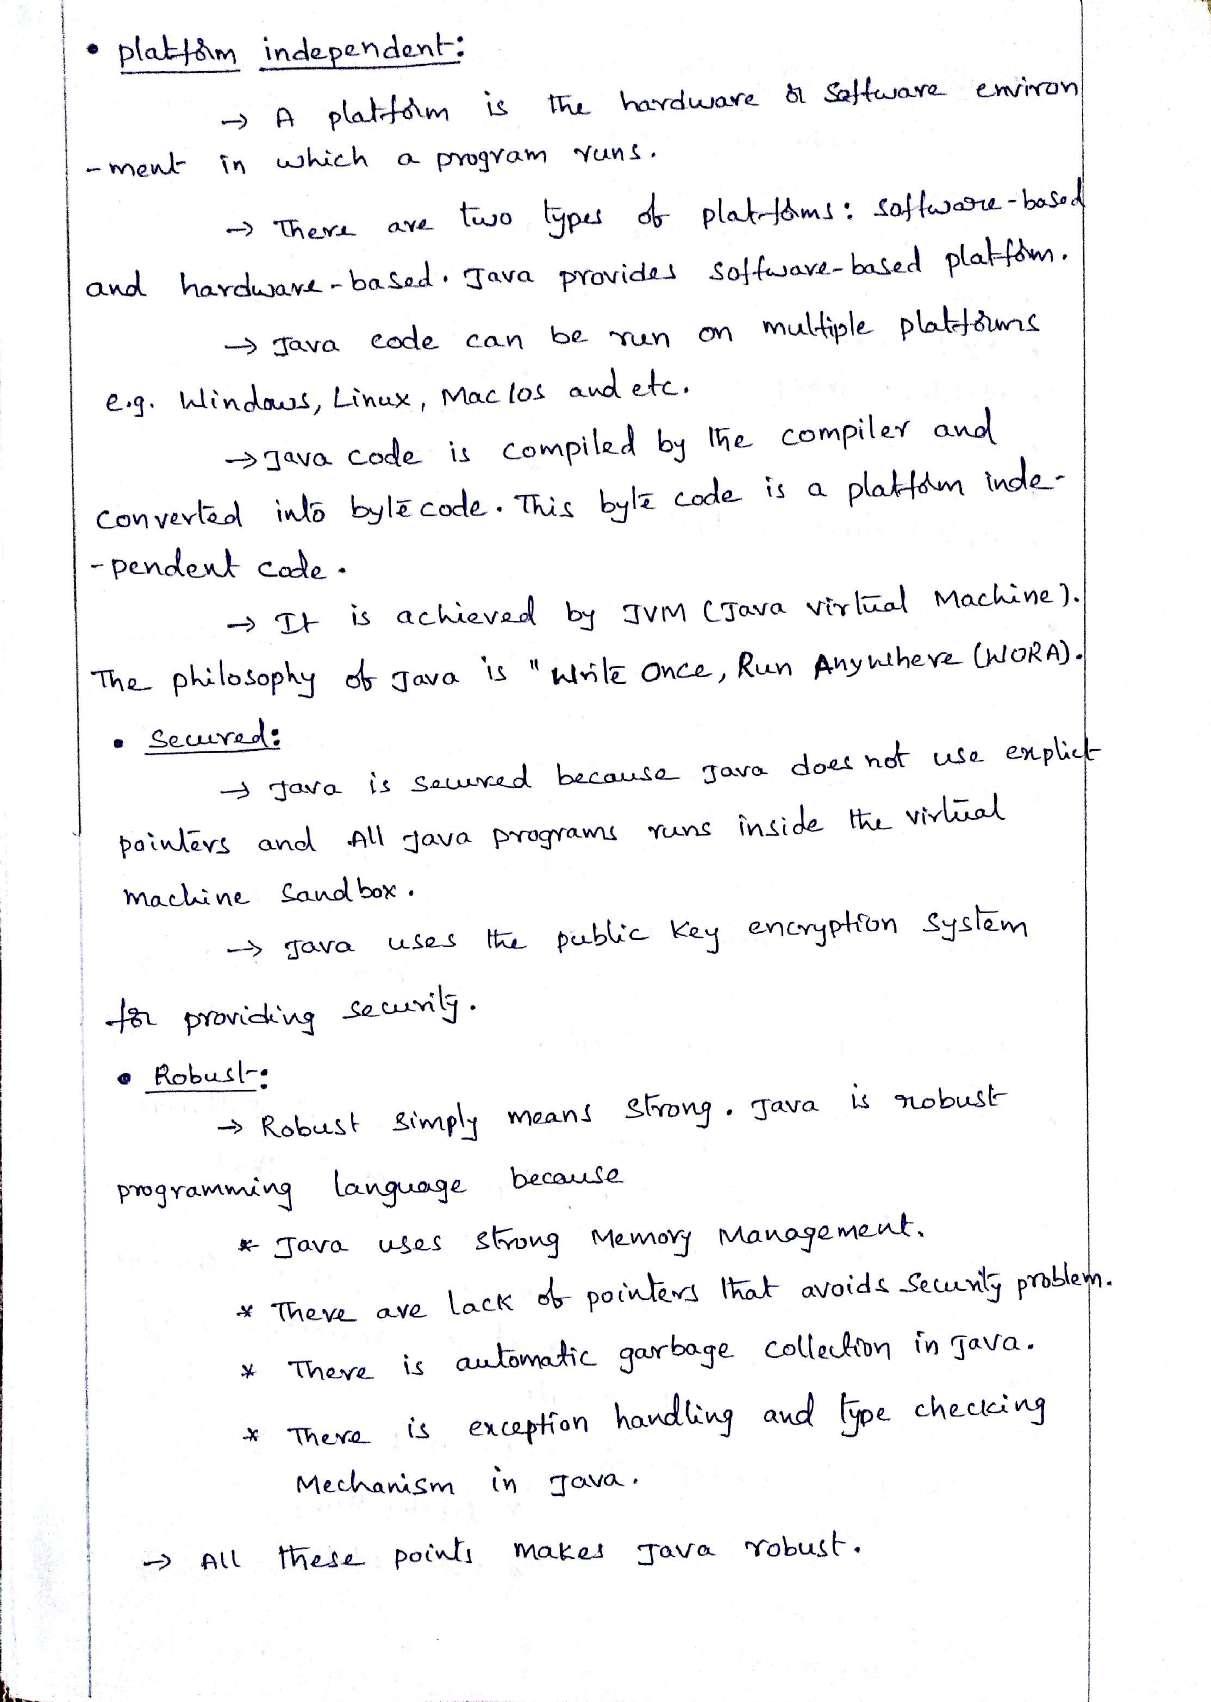 • Platform independent:
→ A platform is the hardware or Software environ
-ment in which a program runs.
→ There are two types of platforms: software-based
and hardware-based. Java provides software-based platform.
→ Java code can be run on multiple platforms
e.g. Windows, Linux, Mac Ios and etc.
→ Java code is compiled by the compiler and
converted into byte code. This byte code is a platform inde-
-pendent code.
→ It is achieved by JVM (Java virtual Machine).
The philosophy of Java is " Write Once, Run Anywhere (WORA).
• Secured:
→ Java is secured because Java does not use explict
pointers and All Java programs runs inside the virtual
machine Sandbox.
→ Java uses the public key encryption system
for providing security.
• Robust:
→ Robust simply means strong. Java is robust
programming language because
* Java uses strong Memory Management.
* There are lack of pointers that avoids Security problem.
* There is automatic garbage collection in Java.
* There is exception handling and type checking
Mechanism in Java.
→ All these points makes Java robust.